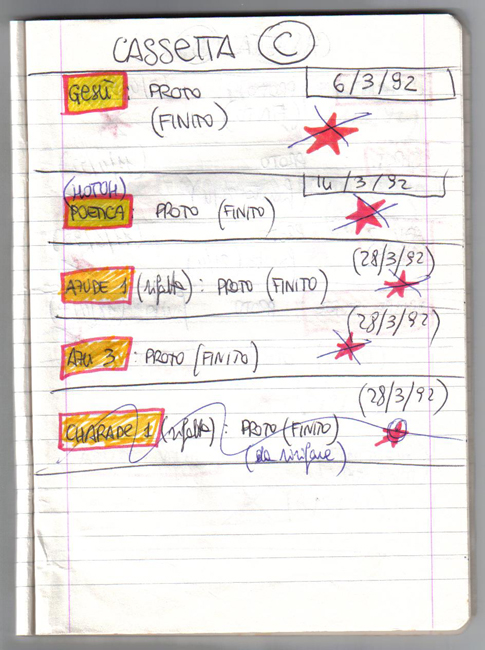 CASSETTA C
Gesù : PROTO 6/3/92
(FINITO)
(HOTOH) 14/3/92
POETICA : PROTO (FINITO)
(28/3/92)
AZUDE 1 (rifatta) : PROTO (FINITO)
(28/3/92)
AZU 3 : PROTO (FINITO)
(28/3/92)
CHARADE 1 (rifatta) : PROTO (FINITO)
(da ririfare)